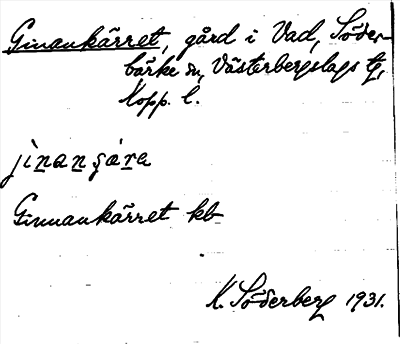 Ginankärret, gård i Vad, Söder-
bärke sn, Västerbergslags tg,
Kopp. l.
jìnanȿára
Ginnankärret kb
K. Söderberg 1931.